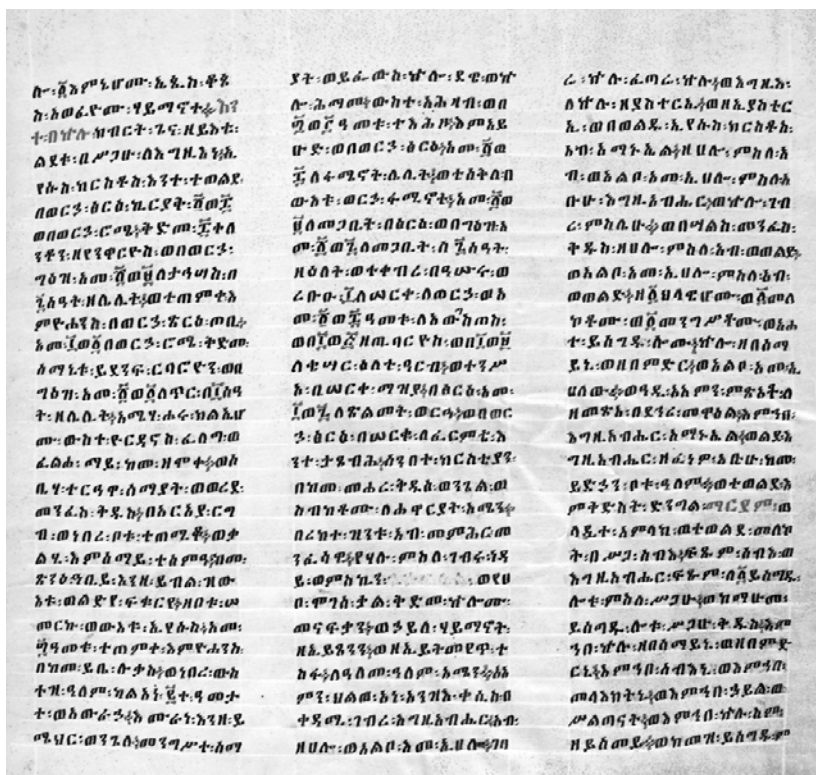 ሎ፡ ፩እምኔሆሙ፡ ኤጲስ፡ ቆጶ
ስ፡ አወፈዮሙ፡ ሃይማኖተ። እን
ተ፡ በኵሉ፡ ክብርት፡ ጌና፡ ዘይእቲ፡
ልደቱ፡ በሥጋሁ፡ ለእግዚእነ፡ ኢ
የሱስ፡ ክርስቶስ፡ እንተ፡ ተወልደ፡
በወርኃ፡
ወበወርኃ፡ ሮሜ፡ ቅድመ፡ ፰ቀለ
ንቶን፡ ዘየንዋርዮስ፡ ወበወርኃ፡
ግዕዝ፡ አመ፡ ፳ወ፱ለታኅሣስ፡ በ
፯ሰዓት፡ ዘሌሊት፡ ወተጠምቀ፡ እ
ምዮሐንስ፡ በወርኃ፡ ጽርዕ፡ ጦቢ፡
አመ፡ ፲ወ፩በወርኃ፡ ሮሜ፡ ቅድመ፡
ሰማኒቱ፡ ይደንፍ፡ ወበ
ግዕዝ፡ አመ፡ ፲ወ፩ለጥር፡ በ፲ሰዓ
ት፡ ዘሌሊት፡ አሜሃ፡ ሐሩ፡ ክልኤሆ
ሙ፡ ውስተ፡ ዮርዳኖስ፡ ፈለግ፡ ወ
ፈልሐ፡ ማይ፡ ከመ፡ ዘሞቀ፡ ወሶ
ቤሃ፡ ተርኅዋ፡ ሰማያት፡ ወወረደ፡
መንፈስ፡ ቅዱስ፡ በአርአያ፡ ርግ
ብ፡ ወነበረ፡ ቦቱ፡ ወቃ
ል፡ እምሰማይ፡ ተሰምዓ፡ ከመ፡
ይብል፡ ዝው
እቱ፡ ወልድየ፡ ፍቁርየ፡ ዘቦቱ፡ ሠ
መርኩ፡ ወውእቱ፡ ኢየሱስ፡ አመ፡
፴ዓመቱ፡ ተጠምቀ፡ እምዮሐንስ፡
በከመ፡ ይቤ፡ ሉቃስ፡ ወነበረ፡ ውስ
ተዝ፡ ዓለም፡ ካልአነ፡ ፫ተ፡ ዓመታ
ተ፡ እንዘ፡ ይ
ሜህር፡ ወንጌለ፡ መንግሥተ፡ ሰማ
ያት፡ ወይፌውስ፡ ኵሎ፡ ደዌ፡ ወኵ
ሎ፡ ሕማመ፡ ውስተ፡ አሕዛብ፡ ወበ
፴ወ፫ዓመቱ፡ ተእኅዘ፡ እምአይ
ሁድ፡ ወበወርኃ፡ ዕርዕ፡ አመ፡ ፳ወ
፯ለፋሜኖት፡ ሌሊት፡ ወተሰቅለ፡ በ
ውእቱ፡ ወርኃ፡ ፋሜኖት፡ አመ፡ ፳ወ
፱ለመጋቢት፡ በዕርዕ፡ ወበግዕዝ፡ አ
መ፡ ፳ወ፯ለመጋቢት፡ በ፯ሰዓት፡
ዘዕለት፡ ወተቀብረ፡ በዓሡሩ፡ ወ
ረቡዑ፡ ለሠርቀ፡ ለወርኃ፡ ወአ
ወበ፲ወ፭ዘጢባርዮስ፡ ወበ፲ወ፱
ለቄሣር፡ ዕለተ፡ ዓርብ፡ ወተንሥ
አ፡ በሠርቀ፡ ማዝያ፡ በዕርዕ፡ አመ፡
ለጽልመት፡ ወርኁ፡ ወበወር
ኃ፡ ዕርዕ፡ በሠርቁ፡ ለፈርምቲ፡ እ
ንተ፡ ታጼብሕ፡ ሰንበተ፡ ክርስቲያን፡
በከመ፡ መሐረ፡ ቅዱስ፡ ወንጌል፡ ወ
ስብከቶሙ፡ ለሐዋርያት፡ አሜን፡
በረከተ፡ ዝንቱ፡ አብ፡ መምህርመ
ንፈሳዊ፡ የሃሉ፡ ምስለ፡ ገብሩ፡ ነዳ
ይ፡ ወምስኪን፡ ወየሀ
በ፡ ሞገሰ፡ ቃል፡ ቅድመ፡ ኵሎሙ፡
መናፍቃን፡ ወኃይለ፡ ሃይማኖት፡
ዘኢይጸንን፡ ወዘኢይትመየጥ፡ ተ
ስፋ፡ ለዓለመ፡ ዓለም፡ አሜን፡ አአ
ምን፡ ህልወ፡ አነ፡ አንዝእ፡ ቀሲስ፡ በ
ቀዳሜ፡ ገብረ፡ እግዚአብሔር፡ አብ፡
ዘሀሎ፡ ወአልቦ፡ አመ፡ ኢሀሎ፡ ገባ
ሬ፡ ኵሉ፡ ፈጣሬ፡ ኵሉ፡ ወእግዚእ፡
ለኵሉ፡ ዘያስተርኢ፡ ወዘኢያስተር
ኢ፡ ወበወልዱ፡ ኢየሱስ፡ ክርስቶስ፡
አብ፡ አማኑኤል፡ ዘሀሎ፡ ምስለ፡ አ
ብ፡ ወአልቦ፡ አመ፡ ኢሀሎ፡ ምስለ፡ አ
ቡሁ፡ እግዚአብሔር፡ ወኵሎ፡ ገብ
ረ፡ ምስሌሁ፡ ወበሣልስ፡ መንፈስ፡
ቅዱስ፡ ዘሀሎ፡ ምስለ፡ አብ፡ ወወልድ፡
ወአልቦ፡ አመ፡ ኢሀሎ፡ ምስለ፡ አብ፡
ወወልድ፡ ዘ፩ህላዌሆሙ፡ ወ፩መለ
ኮቶሙ፡ ወ፩መንግሥቶሙ፡ ወአሐ
ተ፡ ይሰግዱ፡ ሎሙ፡ ኵሉ፡ ዘበሰማ
ይኒ፡ ወዘበምድር፡ ወአልቦ፡ አመ፡ ኢ
ሀለው፡ ወዓዲ፡ አአምን፡ ምጽአቶ፡ ለ
ዘመጽአ፡ በደኃሪ፡ መዋዕል፡ እምኀበ፡
እግዚአብሔር፡ አማኑኤል፡ ወልደ፡ እ
ግዚአብሔር፡ ዘፈነዎ፡ አቡሁ፡ ከመ፡
ይድኃን፡ ቦቱ፡ ዓለም፡ ወተወልደ፡ እ
ምቅድስት፡ ድንግል፡ ማርያም፡ ወ
ላዲተ፡ አምላክ፡ ወተወልደ፡ መለኮ
ት፡ በሥጋ፡ ሰብእ፡ ፍጹም፡ ሰብእ፡ ወ
እግዚአብሔር፡ ፍጹም፡ ለ፩ይሰግዱ፡
ሎቱ፡ ምስለ፡ ሥጋሁ፡ ወከማሁመ፡
ይሰግዱ፡ ሎቱ፡ ሥጋሁ፡ ቅዱስ፡ እም
ኀበ፡ ኵሉ፡ ዘበሰማይኒ፡ ወዘበምድ
ርኒ፡ እምኀበ፡ ሰብእኒ፡ ወእምኀበ፡
መላእክትኒ፡ ወእምኀበ፡ ኃይል፡ ወ
ሥልጣናት፡ ወእምኀበ፡ ኵሉ፡ ስም፡
ዘይሰመይ፡ ወከመዝ፡ ይሰግዱ፡ ም